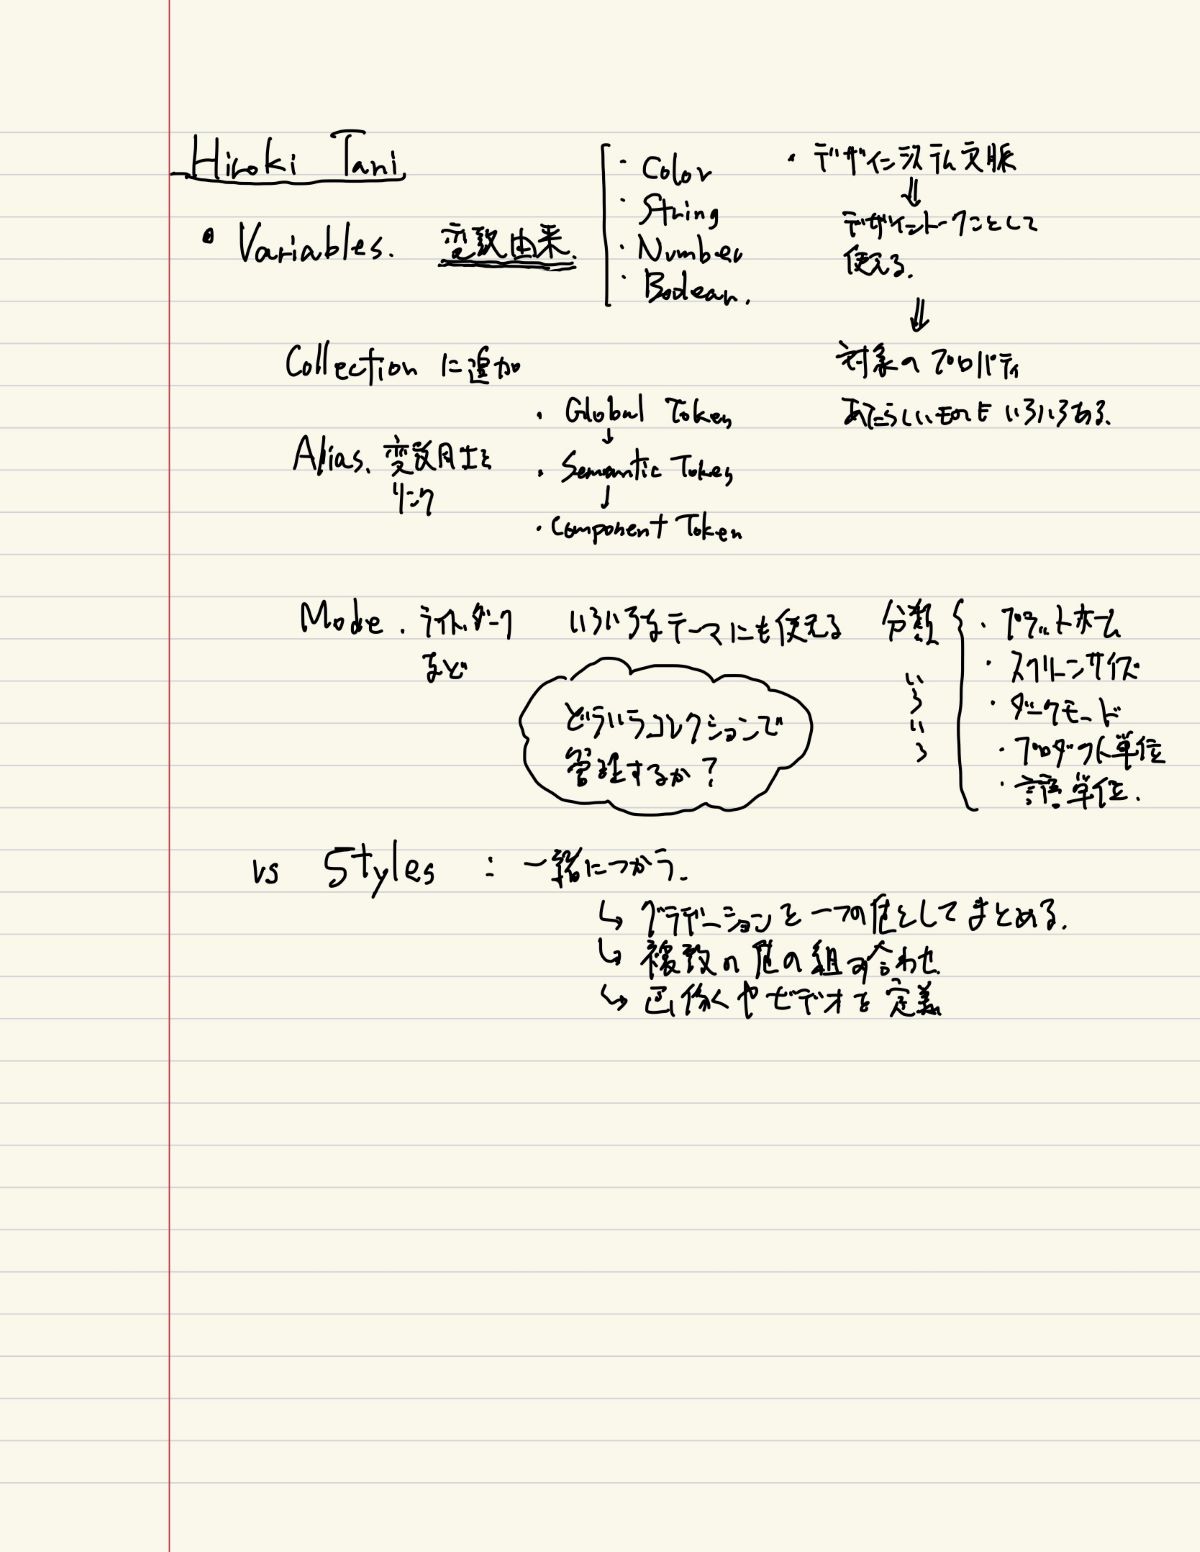 Hiroki Tani
• Variables. 変数由来.
・Color
・String
・Number
・Boolean.
・デザインシステム文脈
⇓
デザイントークンとして
使える.
⇓
対象のプロパティ
あたらしいものもいろいろある.
Collection に追加
Alias. 変数同士を
リンク
・Global Token
↓
・Semantic Token
↓
・Component Token
Mode. ライト、ダーク
など
いろいろなテーマにも使える
どういうコレクションで
管理するか?
分類
いろいろ
・プラットホーム
・スクリーンサイズ
・ダークモード
・プロダクト単位
・言語単位.
vs Styles : 一緒につかう.
↳ グラデーションを一つの色としてまとめる.
↳ 複数の色の組み合わせ
↳ 画像やビデオを定義